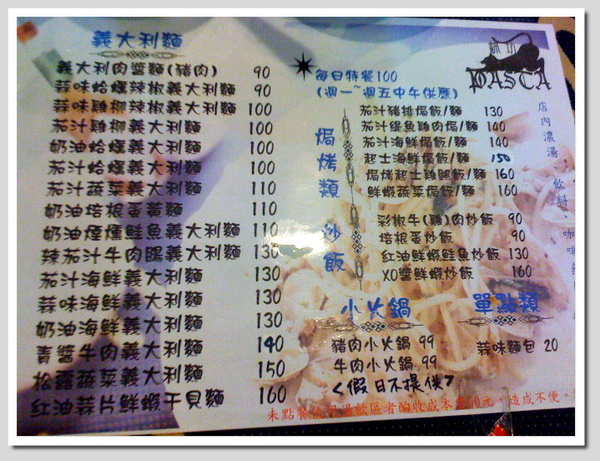 義大利麵
義大利肉醬麵(豬肉) 90
蒜味蛤蠣辣椒義大利麵 90
蒜味雞柳辣椒義大利麵 100
茄汁雞柳義大利麵 100
奶油蛤蠣義大利麵 100
茄汁蛤蠣義大利麵 100
茄汁蔬菜義大利麵 110
奶油培根蛋黃麵 110
奶油燻鮭魚義大利麵 110
辣茄汁牛肉腸義大利麵 130
茄汁海鮮義大利麵 130
蒜味海鮮義大利麵 130
奶油海鮮義大利麵 130
青醬牛肉義大利麵 140
松露蔬菜義大利麵 150
紅油蒜片鮮蝦干貝麵 160
每日特餐100
(週一~週五中午供應)
PASTA
焗烤類
茄汁豬排焗飯/麵 130
茄汁鯷魚雞肉焗/麵 140
茄汁海鮮焗飯/麵 140
起士海鮮焗飯/麵 150
焗烤起士雞腿飯/麵 160
鮮蝦蔬菜焗飯/麵 160
炒飯
彩椒牛(雞)肉炒飯 90
培根蛋炒飯 90
紅油鮮蝦鮭魚炒飯 130
XO醬鮮蝦炒飯 160
小火鍋
豬肉小火鍋 99
牛肉小火鍋 99
<假日不提供>
單點類
蒜味麵包 20
店內濃湯
飲料、咖啡
未點餐
飲區者酌收成本
元，造成不便，